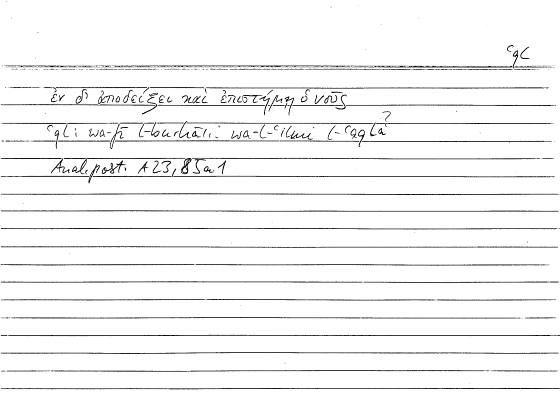 ʿql
ἐν δ' ἀποδείξει καὶ ἐπιστήμῃ ὁ νοῦς
ʿql: wa-fī l-burhāni wa-l-ʿilmi l-ʿaqlᵃ?
Anal. post. A 23, 85a1